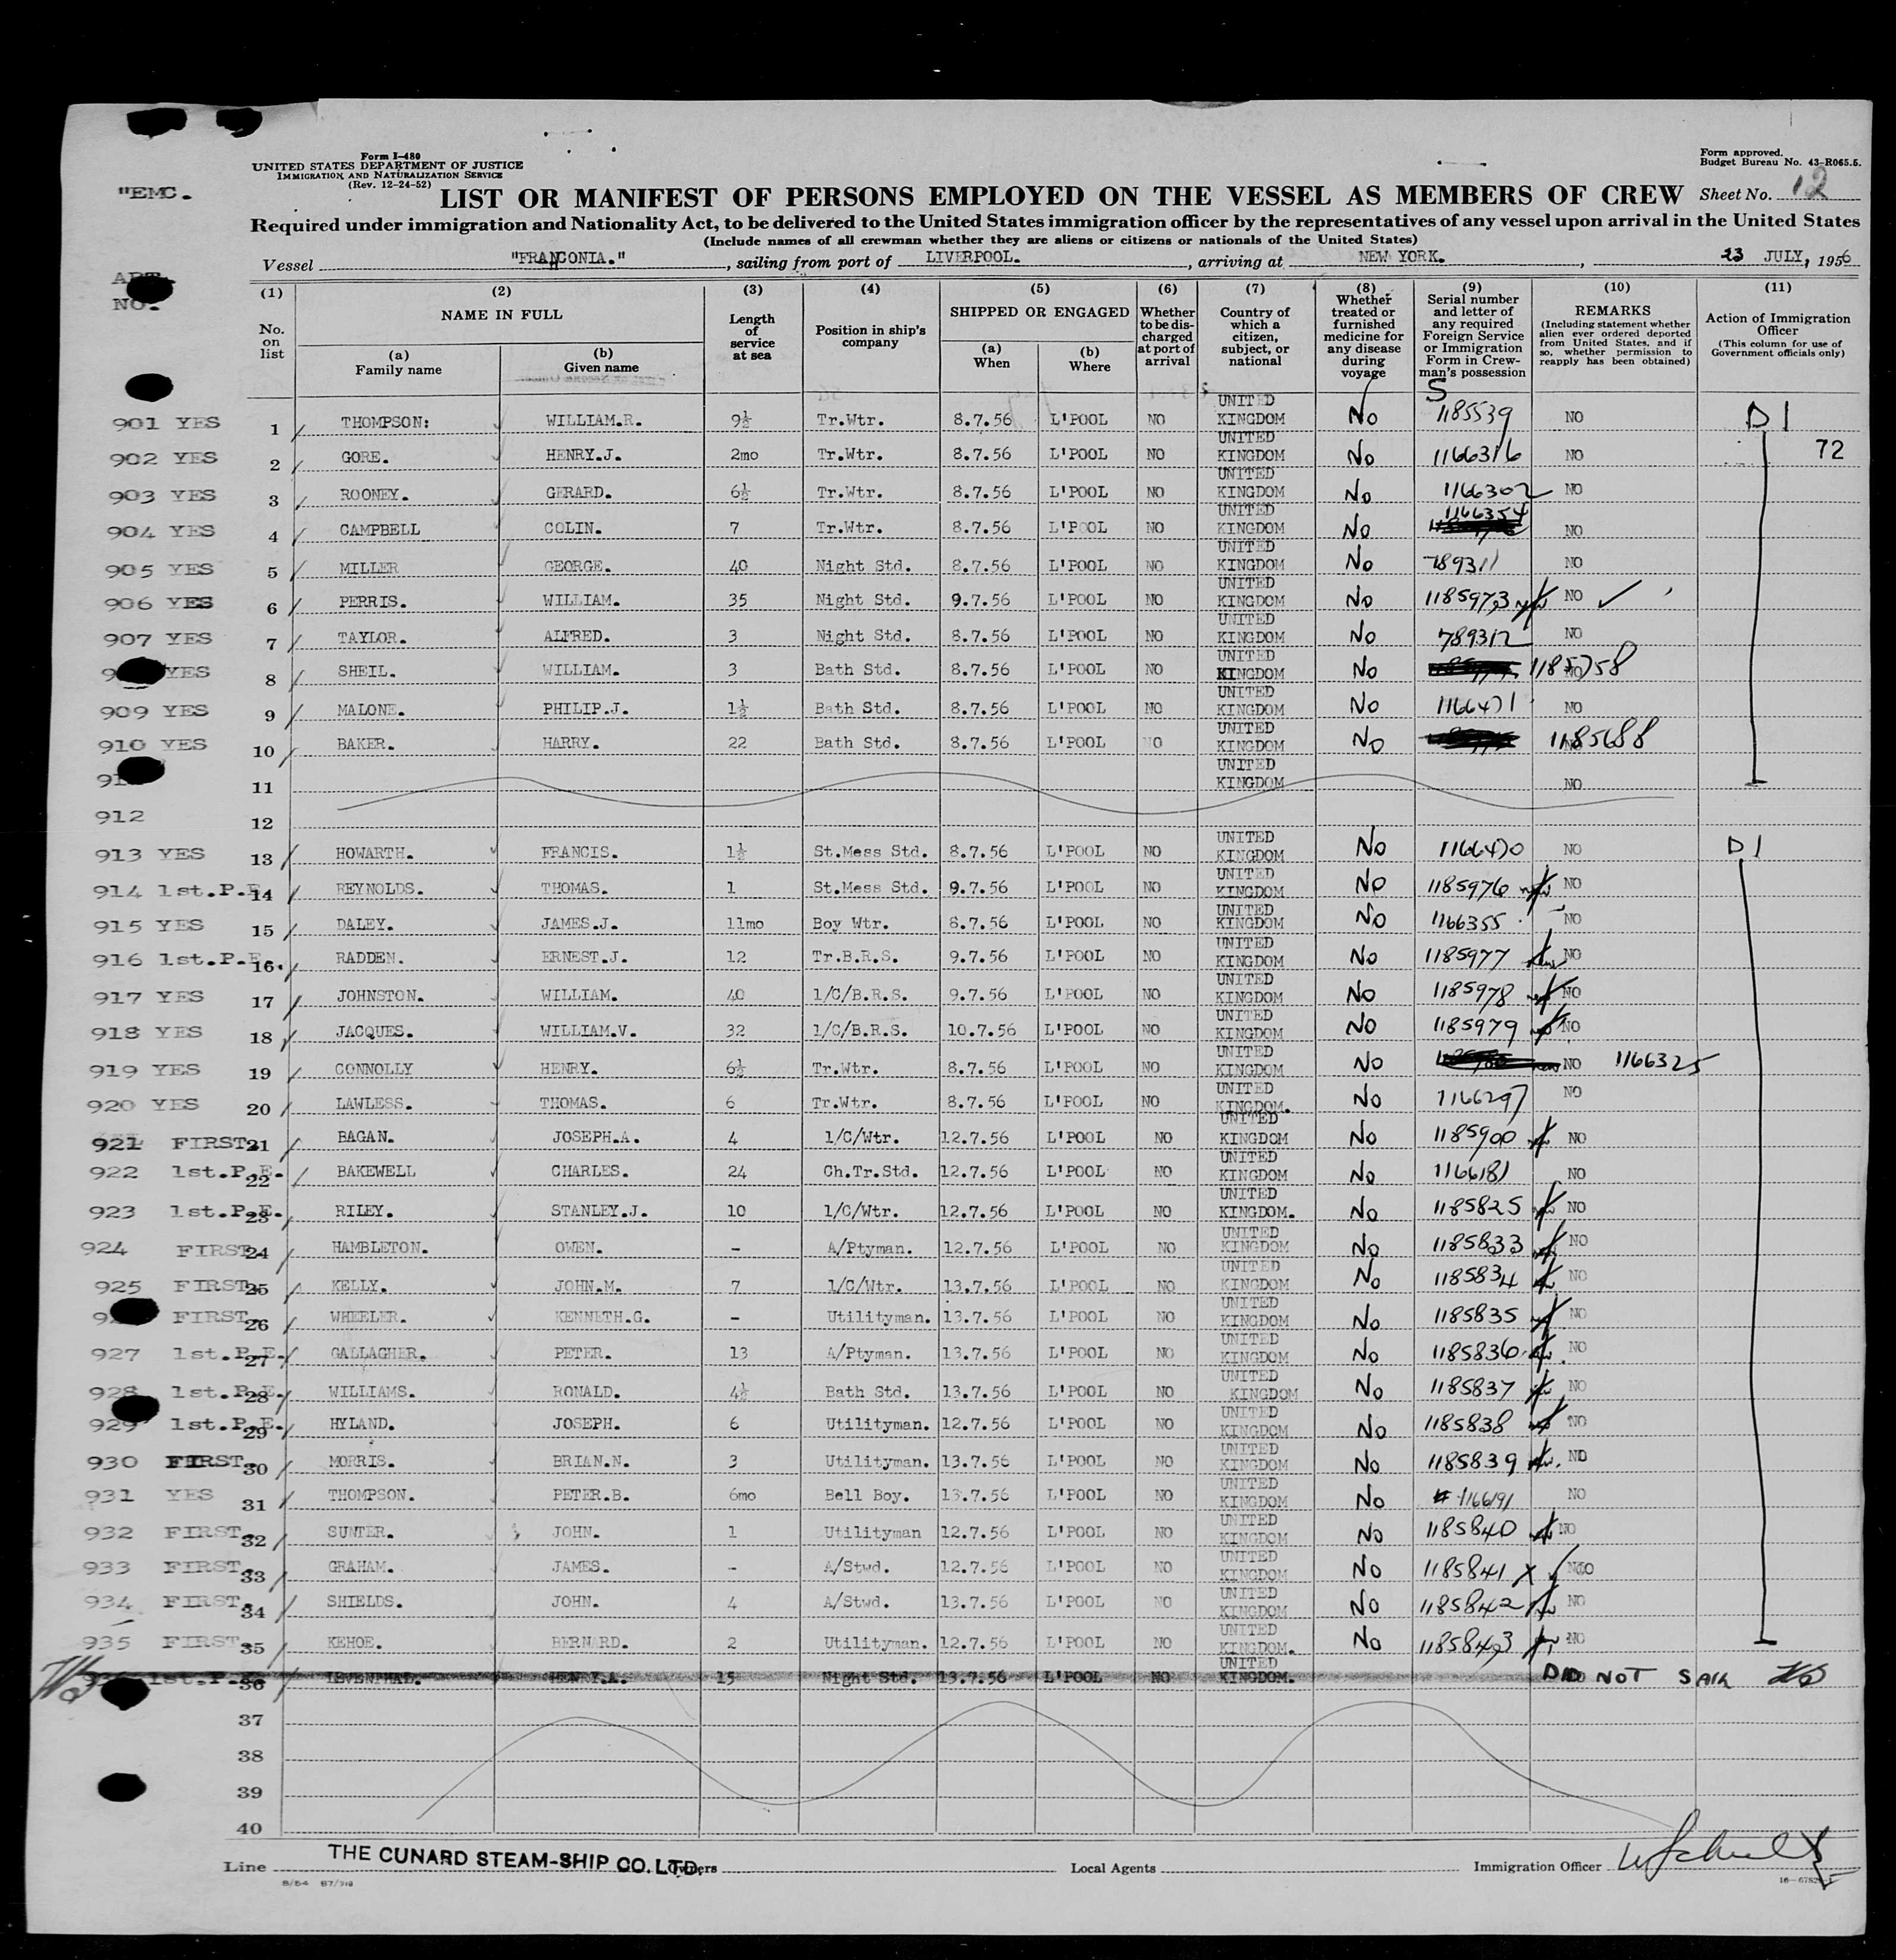 Form I-480
UNITED STATES DEPARTMENT OF JUSTICE
IMMIGRATION AND NATURALIZATION SERVICE
(Rev. 12-24-52)
Form approved.
Budget Bureau No. 43-R065.5.
"EMC.
LIST OR MANIFEST OF PERSONS EMPLOYED ON THE VESSEL AS MEMBERS OF CREW Sheet No. 12
Required under immigration and Nationality Act, to be delivered to the United States immigration officer by the representatives of any vessel upon arrival in the United States
(Include names of all crewman whether they are aliens or citizens or nationals of the United States)
Vessel "FRANCONIA.", sailing from port of LIVERPOOL., arriving at NEW YORK., 23 JULY, 1956
NO.
(1) No. on list
(2) NAME IN FULL (a) Family name (b) Given name
(3) Length of service at sea
(4) Position in ship's company
(5) SHIPPED OR ENGAGED (a) When (b) Where
(6) Whether to be discharged at port of arrival
(7) Country of which a citizen, subject, or national
(8) Whether treated or furnished medicine for any disease during voyage
(9) Serial number and letter of any required Foreign Service or Immigration Form in Crewman's possession
(10) REMARKS (Including statement whether alien ever ordered deported from United States, and if so, whether permission to reapply has been obtained)
(11) Action of Immigration Officer (This column for use of Government officials only)
S
901 YES 1 THOMPSON: WILLIAM.R. 9½ Tr.Wtr. 8.7.56 L'POOL NO UNITED KINGDOM No 1185539 NO D1
902 YES 2 GORE. HENRY.J. 2mo Tr.Wtr. 8.7.56 L'POOL NO UNITED KINGDOM No 1166316 NO 72
903 YES 3 ROONEY. GERARD. 6½ Tr.Wtr. 8.7.56 L'POOL NO UNITED KINGDOM No 1166302 NO
904 YES 4 CAMPBELL COLIN. 7 Tr.Wtr. 8.7.56 L'POOL NO UNITED KINGDOM No 1166354 NO
905 YES 5 MILLER GEORGE. 40 Night Std. 8.7.56 L'POOL NO UNITED KINGDOM No 789311 NO
906 YES 6 PERRIS. WILLIAM. 35 Night Std. 9.7.56 L'POOL NO UNITED KINGDOM No 1185973 NO ✓
907 YES 7 TAYLOR. ALFRED. 3 Night Std. 8.7.56 L'POOL NO UNITED KINGDOM No 789312 NO
YES 8 SHEIL. WILLIAM. 3 Bath Std. 8.7.56 L'POOL NO UNITED KINGDOM No 1185758 NO
909 YES 9 MALONE. PHILIP.J. 1½ Bath Std. 8.7.56 L'POOL NO UNITED KINGDOM No 1166471 NO
910 YES 10 BAKER. HARRY. 22 Bath Std. 8.7.56 L'POOL NO UNITED KINGDOM No 1185688 NO
11 UNITED KINGDOM NO
912 12
913 YES 13 HOWARTH. FRANCIS. 1½ St.Mess Std. 8.7.56 L'POOL NO UNITED KINGDOM No 1166470 NO D1
914 1st.P.E. 14 REYNOLDS. THOMAS. 1 St.Mess Std. 9.7.56 L'POOL NO UNITED KINGDOM No 1185976 NO
915 YES 15 DALEY. JAMES.J. 11mo Boy Wtr. 8.7.56 L'POOL NO UNITED KINGDOM No 1166355 NO
916 1st.P.E. 16. RADDEN. ERNEST.J. 12 Tr.B.R.S. 9.7.56 L'POOL NO UNITED KINGDOM No 1185977 NO
917 YES 17 JOHNSTON. WILLIAM. 40 1/C/B.R.S. 9.7.56 L'POOL NO UNITED KINGDOM No 1185978 NO
918 YES 18 JACQUES. WILLIAM.V. 32 1/C/B.R.S. 10.7.56 L'POOL NO UNITED KINGDOM No 1185979 NO
919 YES 19 CONNOLLY HENRY. 6½ Tr.Wtr. 8.7.56 L'POOL NO UNITED KINGDOM No NO 1166325
920 YES 20 LAWLESS. THOMAS. 6 Tr.Wtr. 8.7.56 L'POOL NO UNITED KINGDOM. No 1166297 NO
921 FIRST. 21 BAGAN. JOSEPH.A. 4 1/C/Wtr. 12.7.56 L'POOL NO UNITED KINGDOM No 1185900 NO
922 1st.P.E. 22 BAKEWELL CHARLES. 24 Ch.Tr.Std. 12.7.56 L'POOL NO UNITED KINGDOM No 1166181 NO
923 1st.P.E. 23 RILEY. STANLEY.J. 10 1/C/Wtr. 12.7.56 L'POOL NO UNITED KINGDOM. No 1185825 NO
924 FIRST. 24 HAMBLETON. OWEN. - A/Ptyman. 12.7.56 L'POOL NO UNITED KINGDOM No 1185833 NO
925 FIRST. 25 KELLY. JOHN.M. 7 1/C/Wtr. 13.7.56 L'POOL NO UNITED KINGDOM No 1185834 NO
FIRST. 26 WHEELER. KENNETH.G. - Utilityman. 13.7.56 L'POOL NO UNITED KINGDOM No 1185835 NO
927 1st.P.E. 27 GALLAGHER. PETER. 13 A/Ptyman. 13.7.56 L'POOL NO UNITED KINGDOM No 1185836 NO
928 1st.P.E. 28 WILLIAMS. RONALD. 4½ Bath Std. 13.7.56 L'POOL NO UNITED KINGDOM No 1185837 NO
929 1st.P.E. 29 HYLAND. JOSEPH. 6 Utilityman. 12.7.56 L'POOL NO UNITED KINGDOM No 1185838 NO
930 FIRST. 30 MORRIS. BRIAN.N. 3 Utilityman. 13.7.56 L'POOL NO UNITED KINGDOM No 1185839 NO
931 YES 31 THOMPSON. PETER.B. 6mo Bell Boy. 13.7.56 L'POOL NO UNITED KINGDOM No 1166191 NO
932 FIRST. 32 SUNTER. JOHN. 1 Utilityman 12.7.56 L'POOL NO UNITED KINGDOM No 1185840 NO
933 FIRST. 33 GRAHAM. JAMES. - A/Stwd. 12.7.56 L'POOL NO UNITED KINGDOM No 1185841 NO
934 FIRST. 34 SHIELDS. JOHN. 4 A/Stwd. 13.7.56 L'POOL NO UNITED KINGDOM No 1185842 NO
935 FIRST. 35 KEHOE. BERNARD. 2 Utilityman. 12.7.56 L'POOL NO UNITED KINGDOM. No 1185843 NO
1st.P.E. 36 LEVENTHAL. HENRY.A. 15 Night Std. 13.7.56 L'POOL NO UNITED KINGDOM. DID NOT SAIL
37
38
39
40
Line THE CUNARD STEAM-SHIP CO. LTD. Owners Local Agents Immigration Officer
8/54